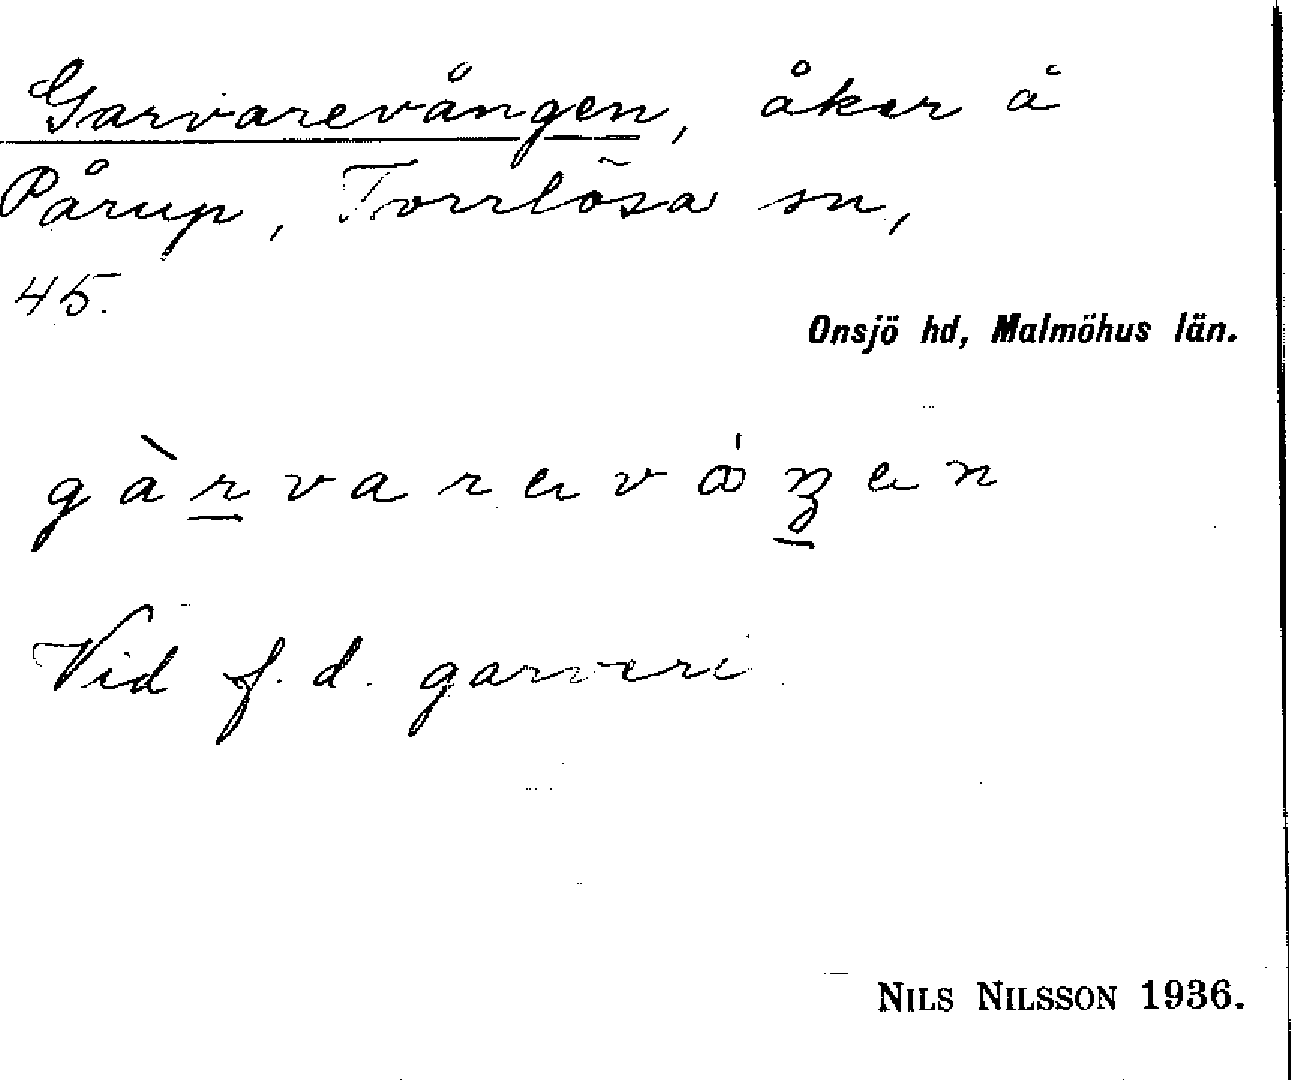 Garvarevången, åker å
Pårup, Torrlösa sn,
45.
Onsjö hd, Malmöhus län.
Vid f.d. garveri
NILS NILSSON 1936.